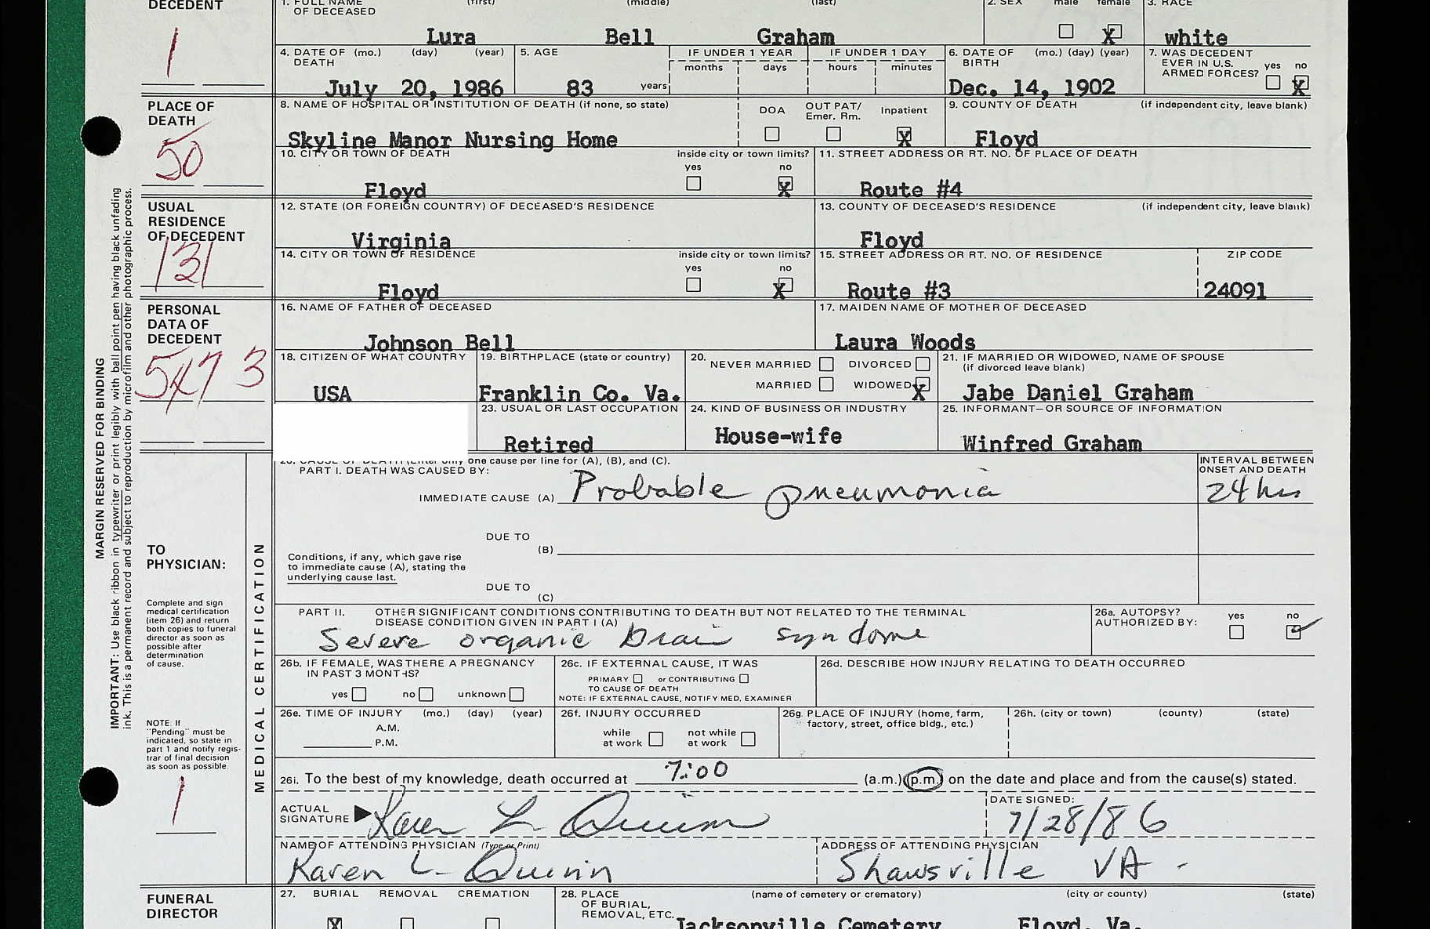 DECEDENT
1. FULL NAME OF DECEASED (first) (middle) (last) 2. SEX male female 3. RACE
Lura Bell Graham X white
1
4. DATE OF DEATH (mo.) (day) (year) 5. AGE IF UNDER 1 YEAR IF UNDER 1 DAY 6. DATE OF BIRTH (mo.) (day) (year) 7. WAS DECEDENT EVER IN U.S. ARMED FORCES? yes no
months days hours minutes
July 20, 1986 83 years Dec. 14, 1902 X
PLACE OF DEATH
8. NAME OF HOSPITAL OR INSTITUTION OF DEATH (if none, so state) DOA OUT PAT/ Emer. Rm. Inpatient 9. COUNTY OF DEATH (if independent city, leave blank)
50
Skyline Manor Nursing Home X Floyd
10. CITY OR TOWN OF DEATH inside city or town limits? yes no 11. STREET ADDRESS OR RT. NO. OF PLACE OF DEATH
Floyd X Route #4
USUAL RESIDENCE OF DECEDENT
12. STATE (OR FOREIGN COUNTRY) OF DECEASED'S RESIDENCE 13. COUNTY OF DECEASED'S RESIDENCE (if independent city, leave blank)
Virginia Floyd
131
14. CITY OR TOWN OF RESIDENCE inside city or town limits? yes no 15. STREET ADDRESS OR RT. NO. OF RESIDENCE ZIP CODE
Floyd X Route #3 24091
PERSONAL DATA OF DECEDENT
16. NAME OF FATHER OF DECEASED 17. MAIDEN NAME OF MOTHER OF DECEASED
Johnson Bell Laura Woods
18. CITIZEN OF WHAT COUNTRY 19. BIRTHPLACE (state or country) 20. NEVER MARRIED DIVORCED 21. IF MARRIED OR WIDOWED, NAME OF SPOUSE
MARRIED WIDOWED X (if divorced leave blank)
USA Franklin Co. Va. Jabe Daniel Graham
23. USUAL OR LAST OCCUPATION 24. KIND OF BUSINESS OR INDUSTRY 25. INFORMANT—OR SOURCE OF INFORMATION
Retired House-wife Winfred Graham
MARGIN RESERVED FOR BINDING
IMPORTANT: Use black ribbon in typewriter or print legibly with ball point pen having black unfading
ink. This is a permanent record and subject to reproduction by microfilm and other photographic process.
one cause per line for (A), (B), and (C).
PART I. DEATH WAS CAUSED BY: INTERVAL BETWEEN ONSET AND DEATH
IMMEDIATE CAUSE (A) Probable pneumonia 24 hrs
DUE TO
(B)
Conditions, if any, which gave rise
to immediate cause (A), stating the
underlying cause last.
DUE TO
(C)
TO PHYSICIAN:
MEDICAL CERTIFICATION
Complete and sign
medical certification
(item 26) and return
both copies to funeral
director as soon as
possible after
determination
of cause.
PART II. OTHER SIGNIFICANT CONDITIONS CONTRIBUTING TO DEATH BUT NOT RELATED TO THE TERMINAL
DISEASE CONDITION GIVEN IN PART I (A) 26a. AUTOPSY? AUTHORIZED BY: yes no
Severe organic brain syndome
26b. IF FEMALE, WAS THERE A PREGNANCY IN PAST 3 MONTHS? 26c. IF EXTERNAL CAUSE, IT WAS 26d. DESCRIBE HOW INJURY RELATING TO DEATH OCCURRED
yes no unknown PRIMARY or CONTRIBUTING
TO CAUSE OF DEATH
NOTE: IF EXTERNAL CAUSE, NOTIFY MED. EXAMINER
NOTE: If
"Pending" must be
indicated, so state in
part 1 and notify regis-
trar of final decision
as soon as possible.
1
26e. TIME OF INJURY (mo.) (day) (year) 26f. INJURY OCCURRED 26g. PLACE OF INJURY (home, farm, factory, street, office bldg., etc.) 26h. (city or town) (county) (state)
A.M.
P.M. while at work not while at work
26i. To the best of my knowledge, death occurred at 7:00 (a.m.) (p.m.) on the date and place and from the cause(s) stated.
ACTUAL SIGNATURE Karen L. Quinn DATE SIGNED: 7/28/86
NAME OF ATTENDING PHYSICIAN (Type or Print) ADDRESS OF ATTENDING PHYSICIAN
Karen L. Quinn Shawsville VA.
FUNERAL DIRECTOR
27. BURIAL REMOVAL CREMATION 28. PLACE OF BURIAL, REMOVAL, ETC. (name of cemetery or crematory) (city or county) (state)
X Jacksonville Cemetery Floyd, Va.